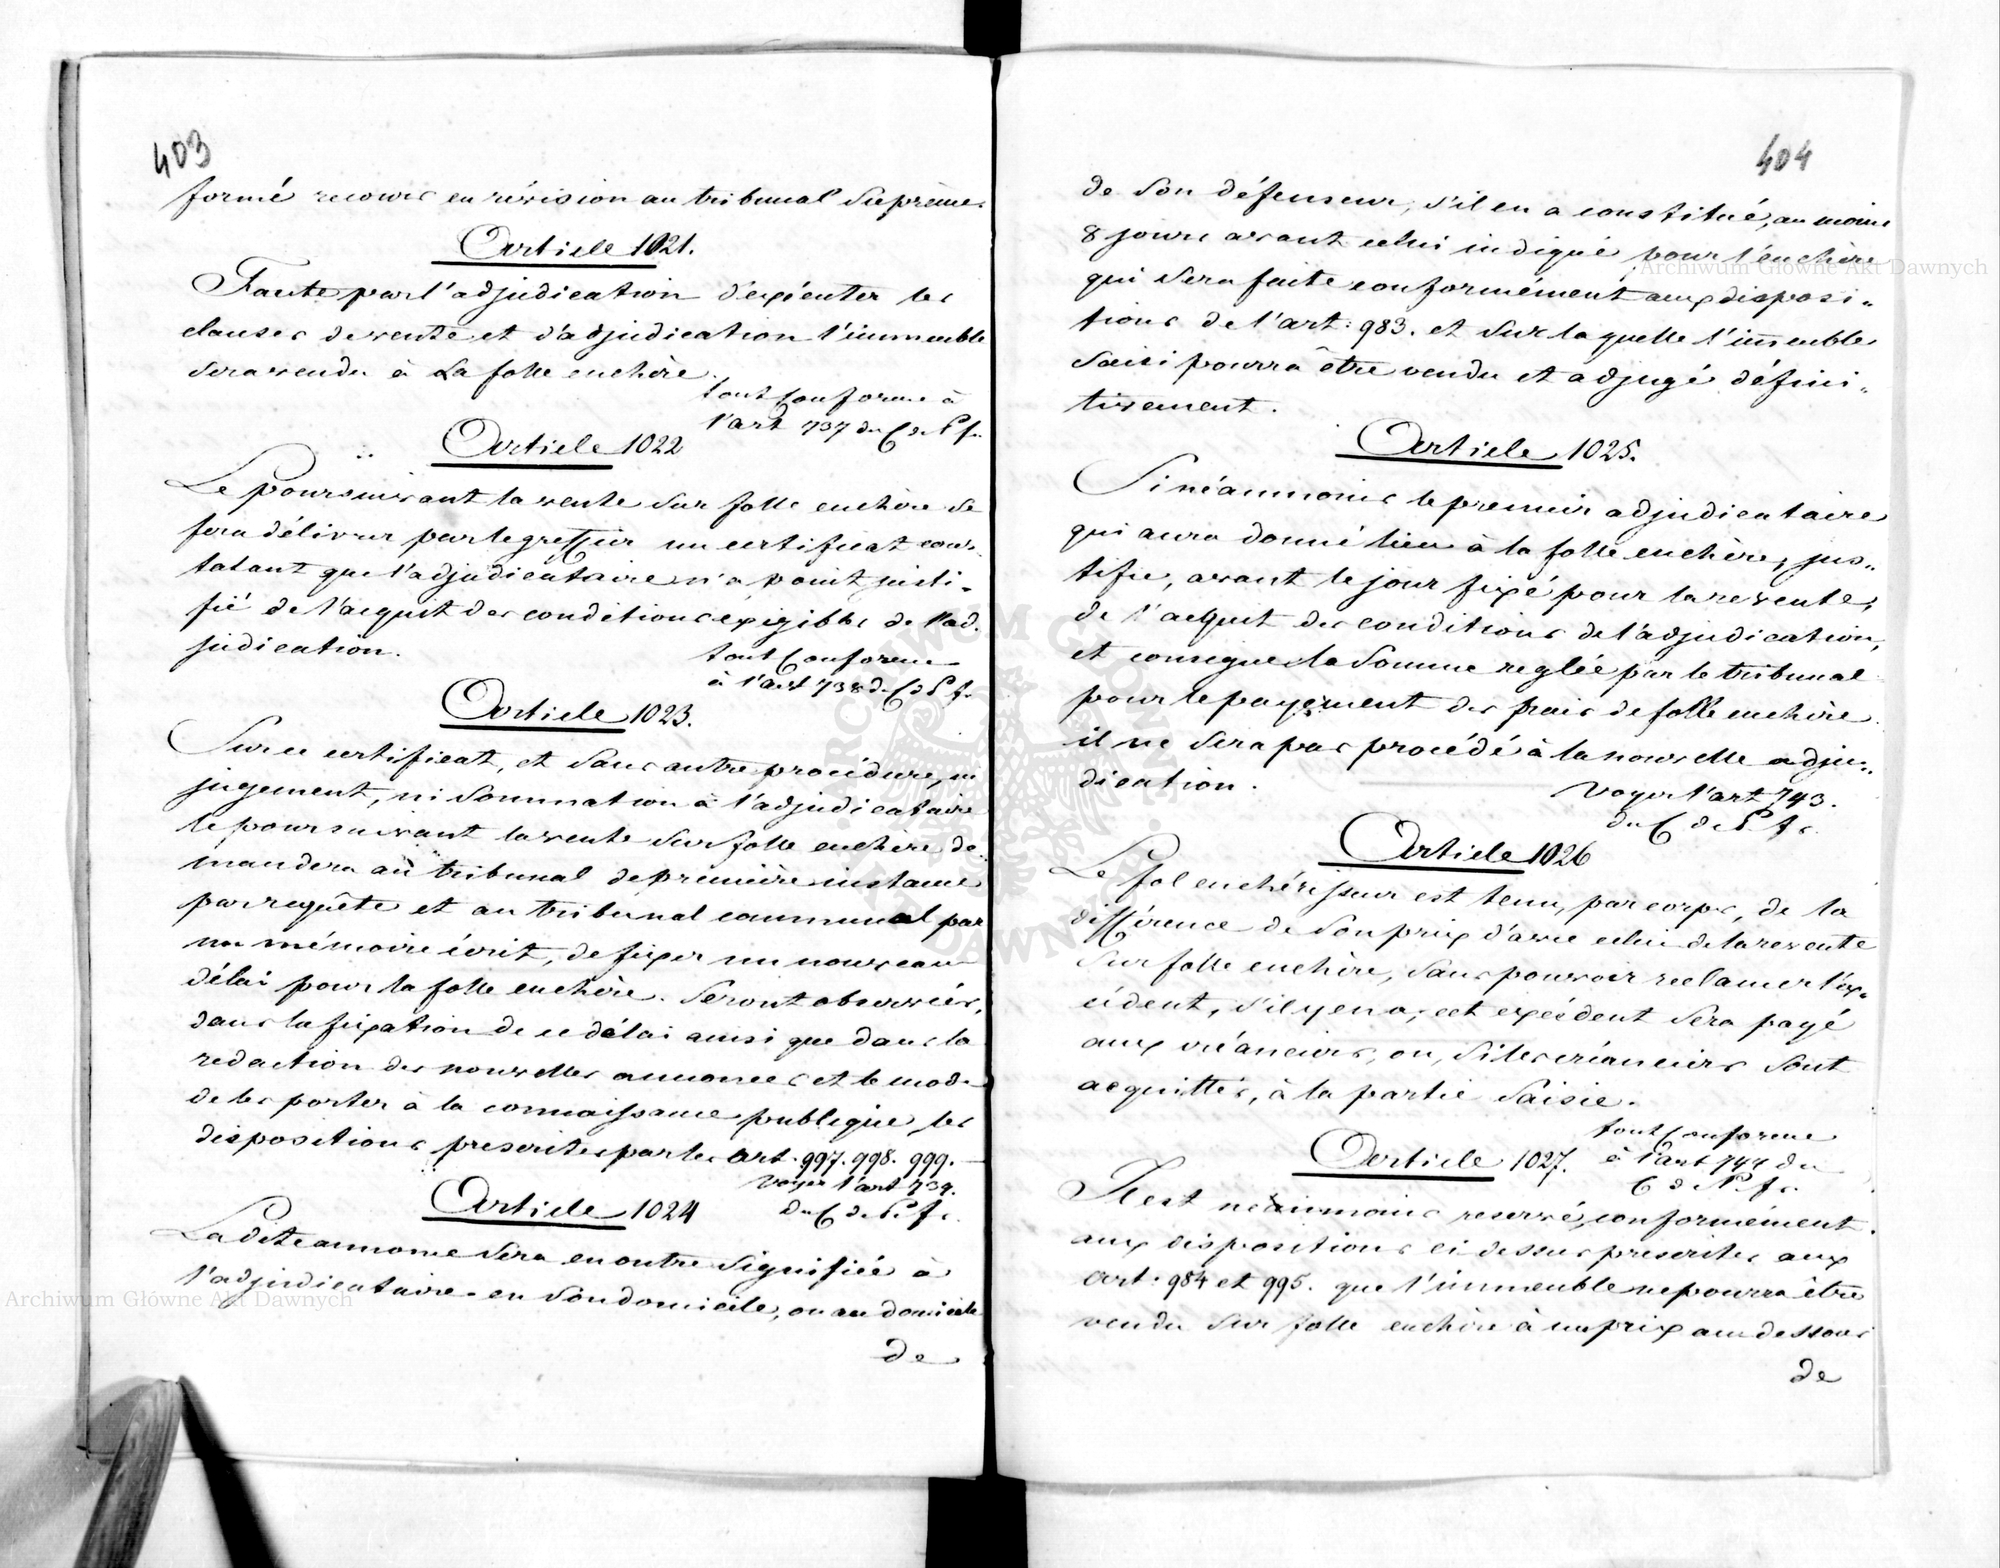 403
formé recours en révision au tribunal Suprême.
Article 1021.
Faute par l'adjudication d'exécuter les
clauses de vente et d'adjudication l'immeuble
sera vendu à la folle enchère.
tout conforme à
l'art 737 du C de P f.
Article 1022
Le poursuivant la vente sur folle enchère se
fera délivrer par le greffier un certificat cons-
tatant que l'adjudicataire n'a point justi-
fié de l'acquit des conditions exigibles de l'ad-
judication.
tout conforme
à l'art 738 du C de P f.
Article 1023.
Sur ce certificat, et sans autre procédure, ni
jugement, ni sommation à l'adjudicataire
le poursuivant la vente sur folle enchère de-
mandera au tribunal de première instance
par requête et au tribunal communal par
un mémoire écrit, de fixer un nouveau
délai pour la folle enchère. Seront observées,
dans la fixation de ce délai ainsi que dans la
redaction des nouvelles annonces et le mode
de les porter à la connaissance publique, les
dispositions prescrites par les art. 997. 998. 999.
voyez l'art 739.
du C de P. f.
Article 1024
La dite annonce sera en outre signifiée à
l'adjudicataire en son domicile, ou au domicile
de
404
de son défenseur, s'il en a constitué, au moins
8 jours avant celui indiqué pour l'enchère
qui sera faite conformément aux disposi-
tions de l'art: 983. et sur laquelle l'immeuble
saisi pourra être vendu et adjugé défini-
tivement.
Article 1025.
Si néanmoins le premier adjudicataire
qui aura donné lieu à la folle enchère, jus-
tifie, avant le jour fixé pour la revente,
de l'acquit des conditions de l'adjudication,
et consigne la somme reglée par le tribunal
pour le payement des frais de folle enchère
il ne sera pas procédé à la nouvelle adju-
dication.
voyez l'art 743.
du C de P f.
Article 1026
Le fol enchérisseur est tenu, par corps, de la
différence de son prix d'avec celui de la revente
sur folle enchère, sans pouvoir reclamer l'ex-
cédent, s'il y en a; cet excédent sera payé
aux créanciers, ou, si les créanciers sont
acquittés, à la partie saisie.
tout conforme
à l'art 744 du
C de P f.
Article 1027.
Il est néanmoins reservé, conformément
aux dispositions ci dessus prescrites aux
art: 984 et 995. que l'immeuble ne pourra être
vendu sur folle enchère à un prix au dessous
de
Archiwum Główne Akt Dawnych
Archiwum Główne Akt Dawnych
ARCHIWUM GŁÓWNE AKT DAWNYCH